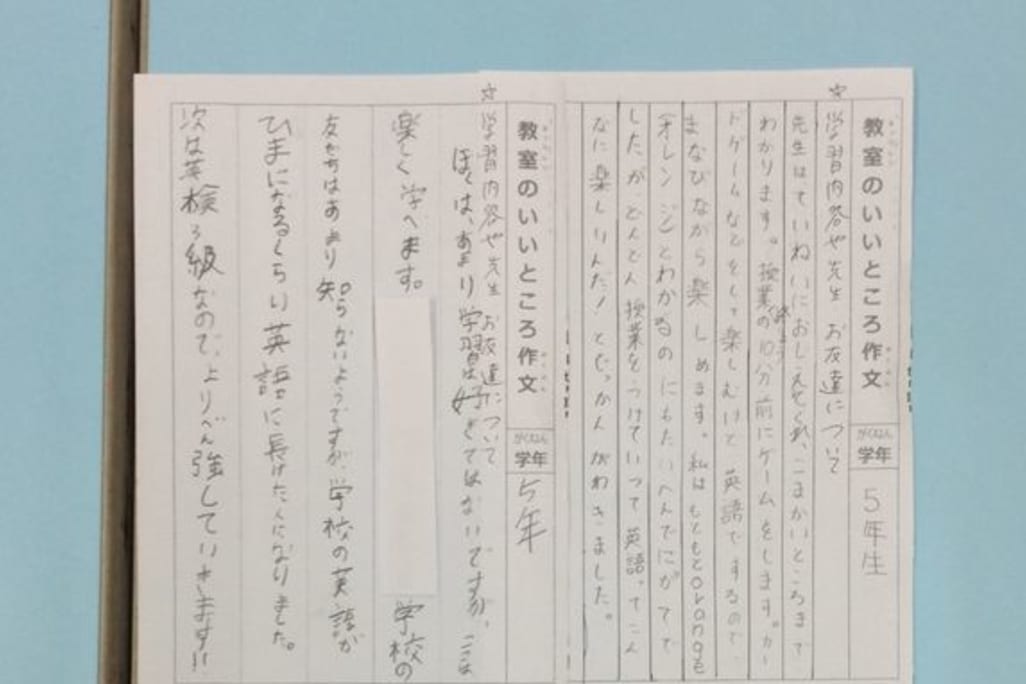 教室のいいところ作文
がくねん
学年 5年生
☆学習内容や先生 お友達について
先生はていねいにおしえてくれ、こまかいところまで
わかります。授業の10分前にゲームをします。カー
ドゲームなどをして楽しむけど英語でするので、
まなびながら楽しめます。私はもともとorangeも
オレンジとわかるのにもたいへんでにがてで
したがどんどん授業をうけていって英語ってこん
なに楽しいんだ!とじっかんがわきました。
教室のいいところ作文
がくねん
学年 5年
☆学習内容や先生 お友達について
ぼくは、あまり学習は好きではないですが、ここは
楽しく学べます。 学校の
友だちはあまり知らないようですが、学校の英語が
ひまになるくらい英語に長けた人になりました。
次は英検3級なので、よりべん強していきます!!